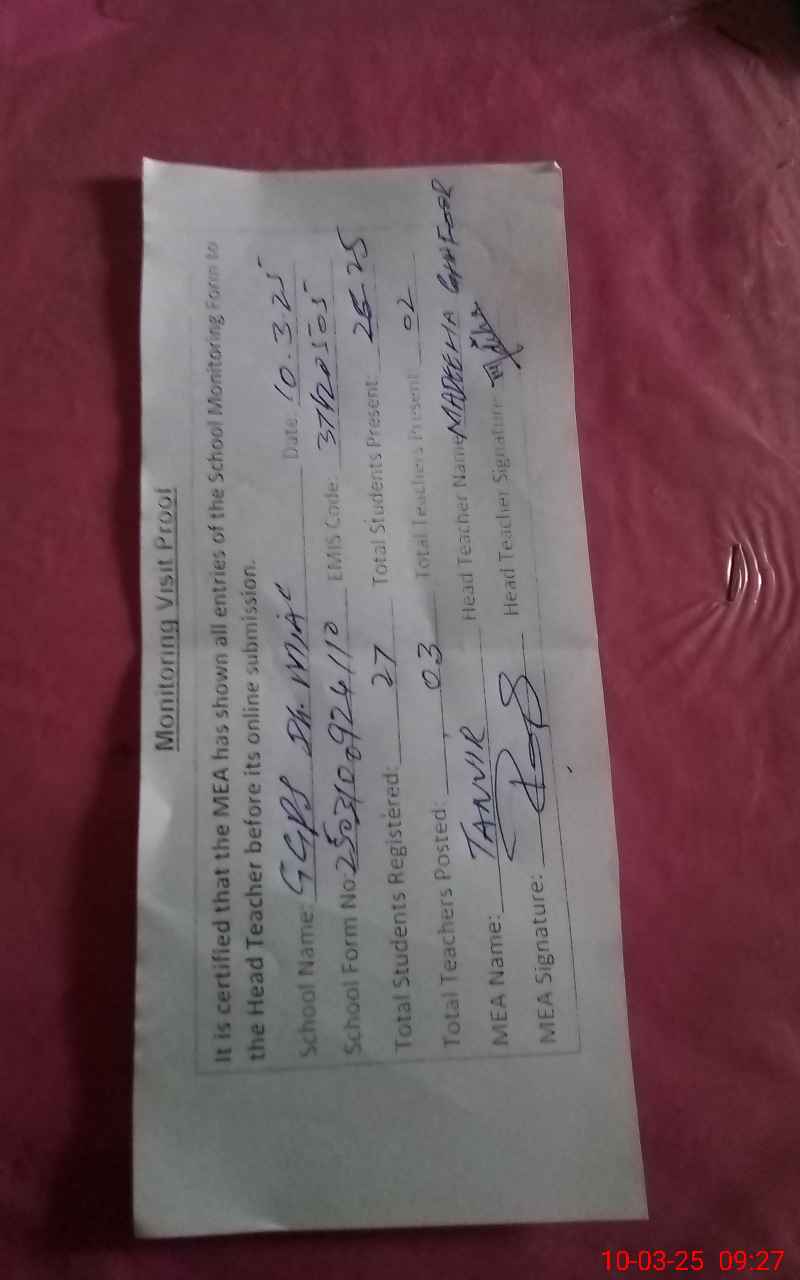 Monitoring Visit Proof
It is certified that the MEA has shown all entries of the School Monitoring Form to
the Head Teacher before its online submission.
School Name: GGPS Dh. Date: 10.3.25
School Form No: EMIS Code:
Total Students Registered: 27 Total Students Present: 25
Total Teachers Posted: 03 Total Teachers Present: 02
MEA Name: TANVIR Head Teacher Name: MADEEHA GHAFOOR
MEA Signature: Head Teacher Signature:
10-03-25 09:27